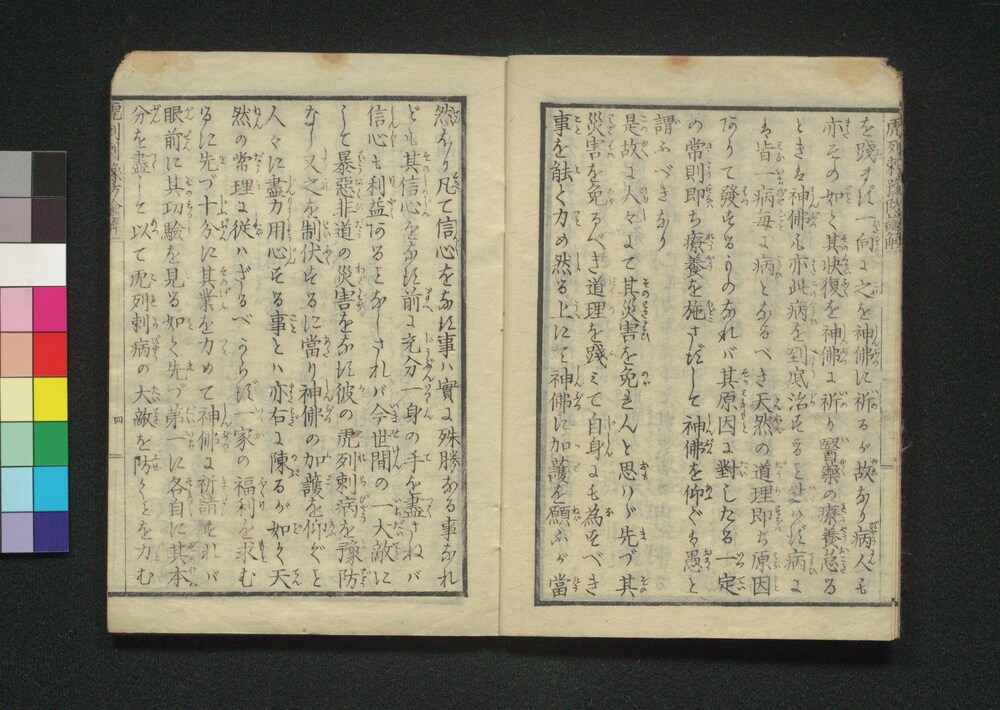 虎列剌豫防諭解
を踐まず一向に之を神佛に祈るが故なり病人も
亦その如く其快復を神佛に祈り醫藥の療養怠る
ときは神佛も亦此病を到底治する と 能はず病に
は皆一病毎に病となるべき天然の道理即ち原因
ありて發するものなれバ其原因に對したる一定
の常則即ち療養を施さずして神佛を仰ぐハ愚と
謂ふべきなり
是故に人々にて其災害を免れんと思ハヾ先づ其
災害を免るべき道理を踐ミて自身にも為すべき
事を能く力め然る上にて神佛に加護を願ふが當
然なり凡て信心をなす事ハ實に殊勝なる事なれ
ども其信心をなす前に充分一身の手を盡さねバ
信心も利益あると なしされバ今世間の一大敵に
して暴惡非道の災害をなす彼の虎列剌病を豫防
なし又之を制伏するに當り神佛の加護を仰ぐと
人々に盡力用心する事とハ亦右に陳るが如く天
然の常理に從ハざるべからず一家の福利を求む
るに先づ十分に其業を力めて神佛に祈請をれバ
眼前に其功驗を見る如く先づ第一に各自に其本
分を盡して以て虎列剌病の大敵を防ぐとを力む
虎列剌豫防諭解
四